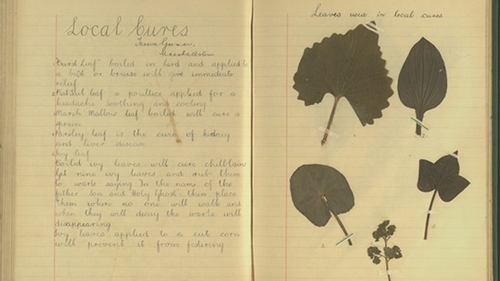 Local Cures
"Burdock Leaf" boiled in lard and applied
a bite or bruise will give immediate
relief
leaf a poultice applied for a
headache soothing and cooling
Marsh Mallows leaf boiled will cure a
sprain
Parsley leaf is the cure of kidney
and liver disease
Ivy leaf
Boiled ivy leaves will cure chilblains
Get nine ivy leaves and rub them
to warts saying In the name of the
Father Son and Holy Ghost then place
them where no one will walk and
when they will decay the warts will
disappearing
Ivy leaves applied to a cut corn
will prevent it from festering
Leaves used in local cures